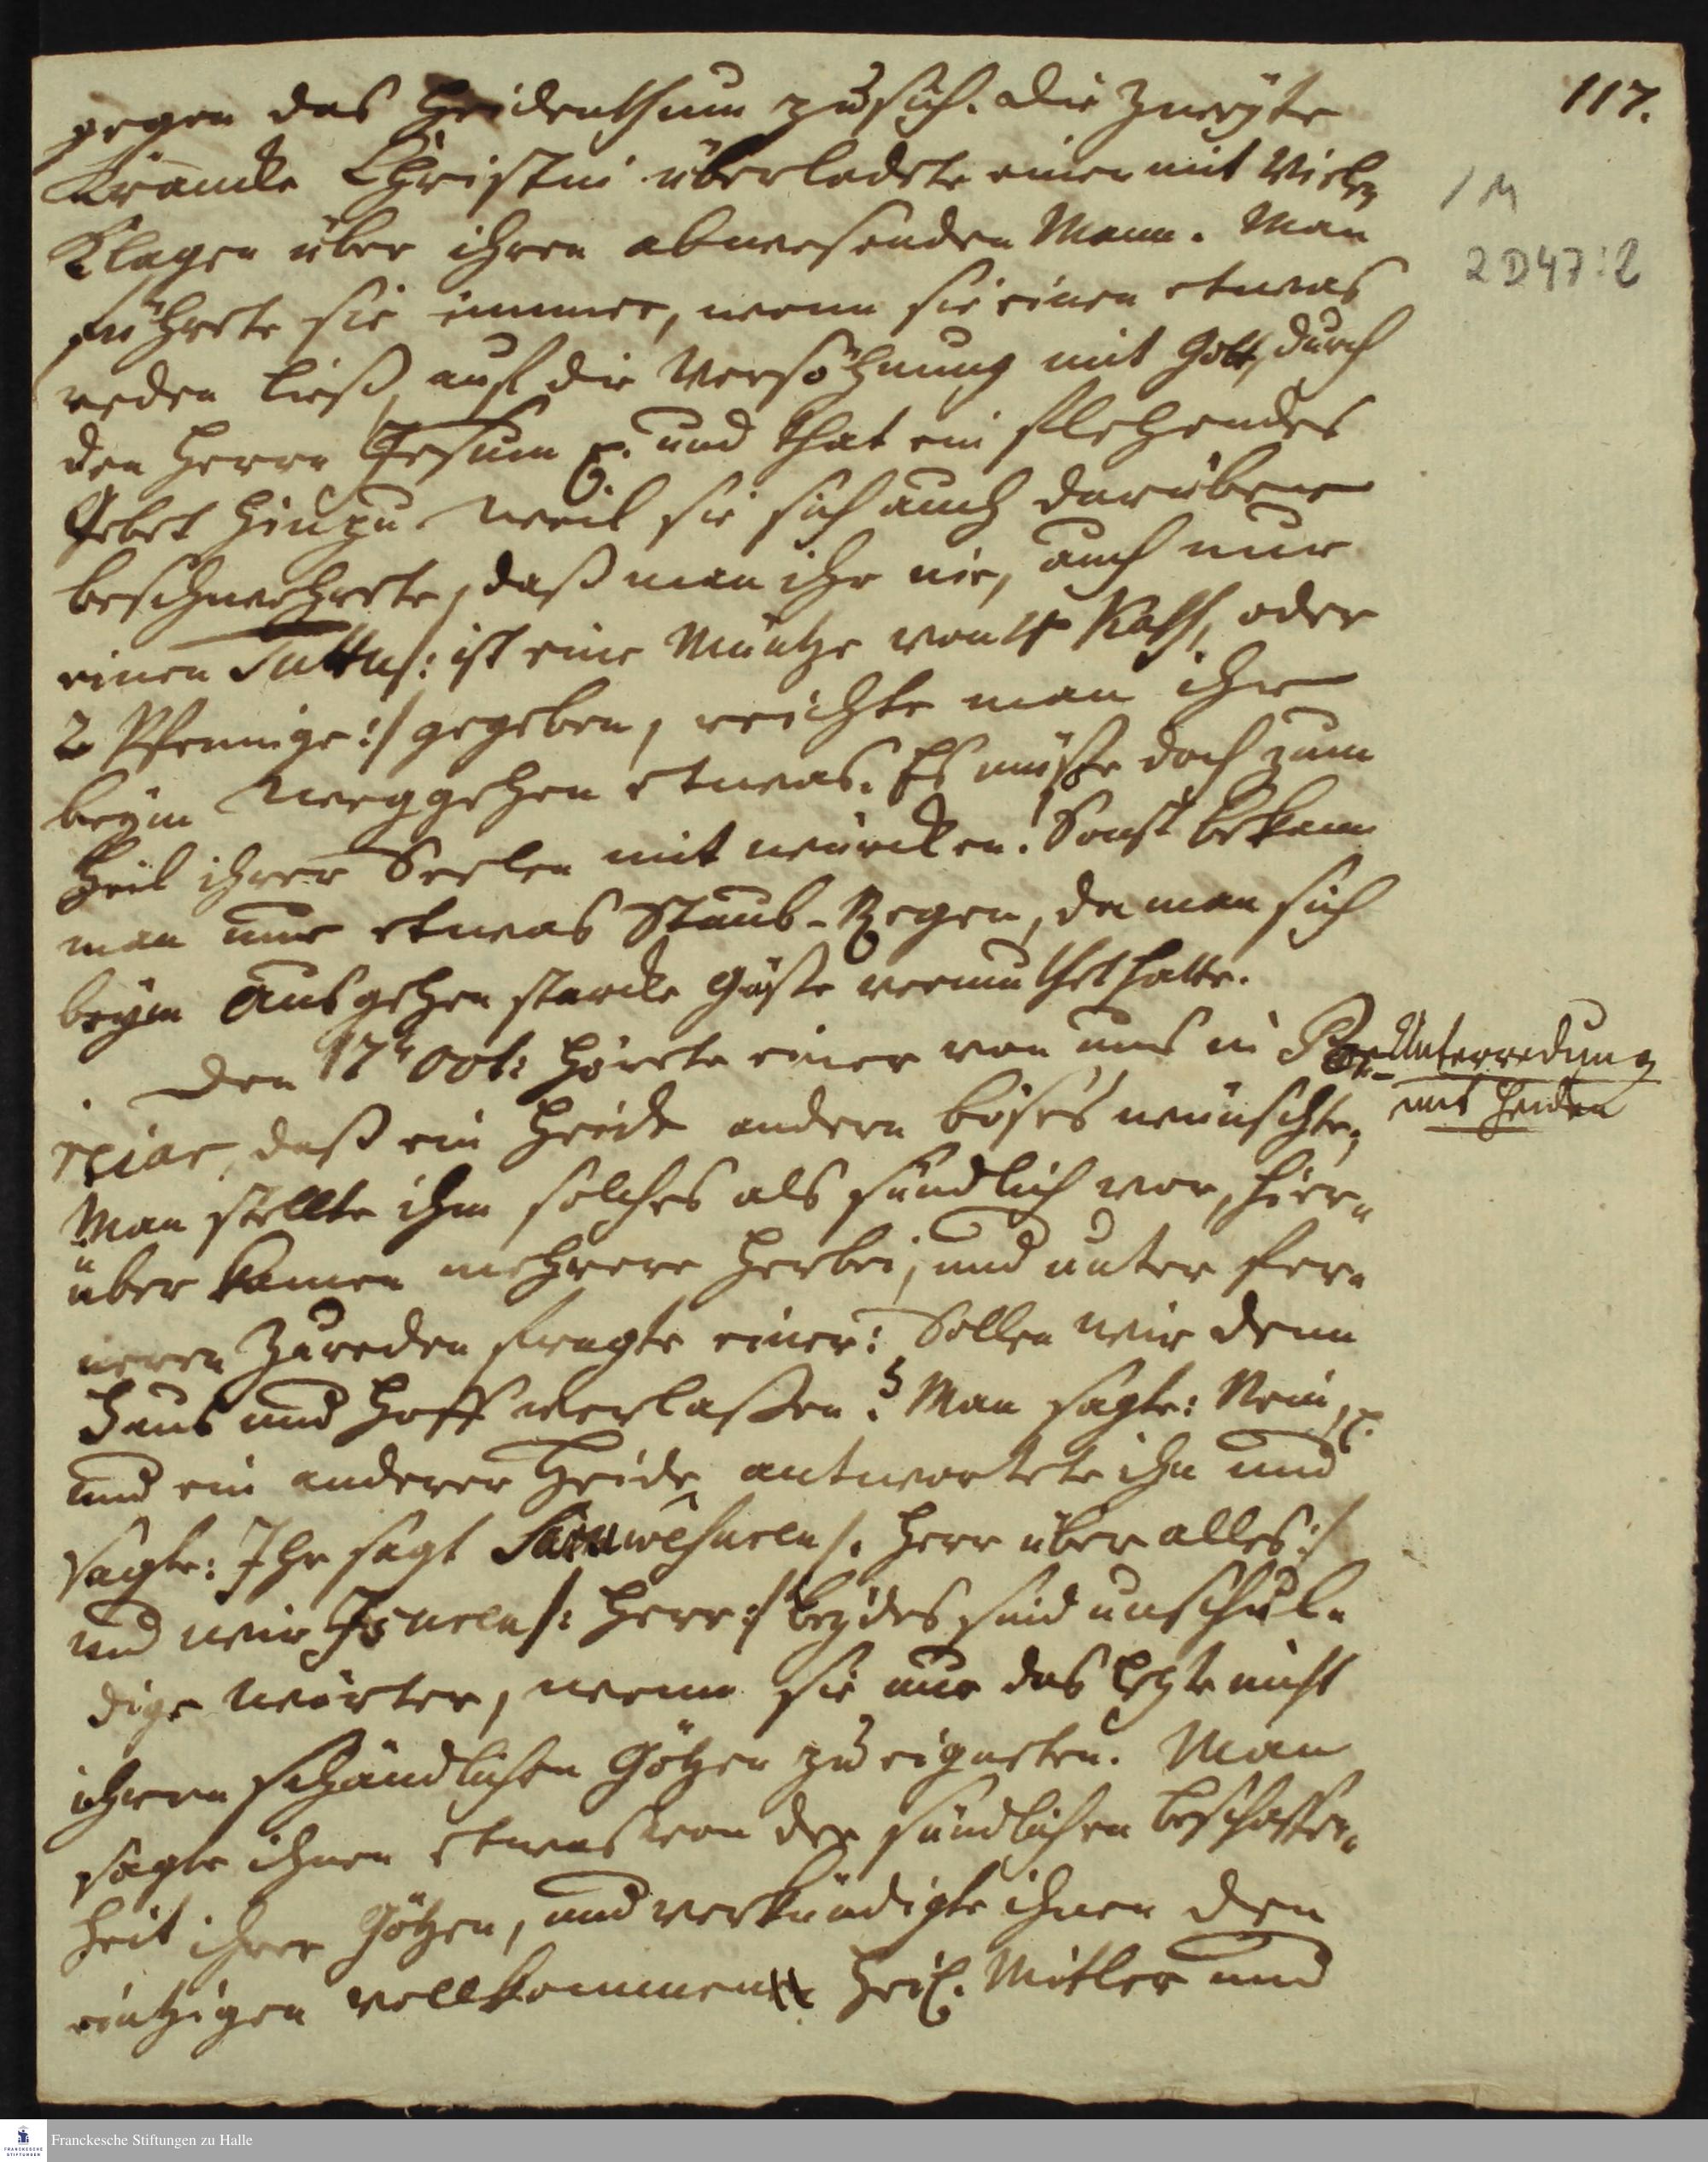 117.
1 M
2 D 47:2
gegen das Heidenthum zu sich. Die Zweyte
Krancke Christin überladete einen mit Vielen
Klagen über ihren abwesenden Mann. Man
führete sie immer, wenn sie einen etwas
reden ließ, auf die Versöhnung mit Gott, durch
den Herrn Jesum p. und that ein flehendes
Gebet hinzu. Weil sie sich auch darüber
beschwehrete, daß man ihr nie, auch nur
einen Tuttu /: ist eine Müntze von 4 Kass, oder
2 Pfennige :/ gegeben, reichte man ihr
beym Weggehen etwas. Es müste doch zum
Heil ihrer Seelen mit würcken! Sonst bekam
man nur etwas Staub-Regen, da man sich
beym Ausgehen starcke Güsse vermuthet hatte.
Den 17t Oct: hörete einer von uns in Por-
reiar, daß ein Heide andern böses wünschte,
Unterredung
mit Heiden
Man stellte ihm solches als sündlich vor, hier-
über kamen mehrere herbei, und unter fer-
neren Zureden fragte einer: Sollen wir denn
Hauß und Hoff verlaßen? Man sagte: Nein, p.
und ein anderer Heide antwortete ihn und
sagte: Ihr sagt Saruwesuren /: Herr über alles :/
und wir Isuren /: Herr :/ beydes sind unschul-
dige Wörter, wenn sie nur das lezte nicht
ihren schändlichen Götzen zueigneten. Man
sagte ihnen etwas von der sündlichen Beschaffen-
heit ihrer Götzen, und verkündigte ihnen den
eintzigen vollkommen Heil. Mitler und
Franckesche Stiftungen zu Halle